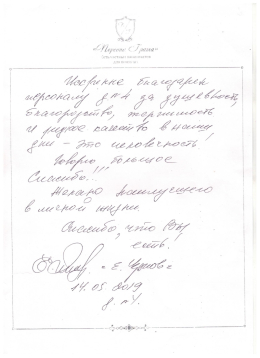 Искренне благодарен
персоналу д.№4 за душевность,
благородство, терпимость
и редкое качество в наши
дни – это человечность!
Говорю большое
Спасибо!!!
Желаю наилучшего
в личной жизни
Спасибо, что Вы
есть.
14.05.2019